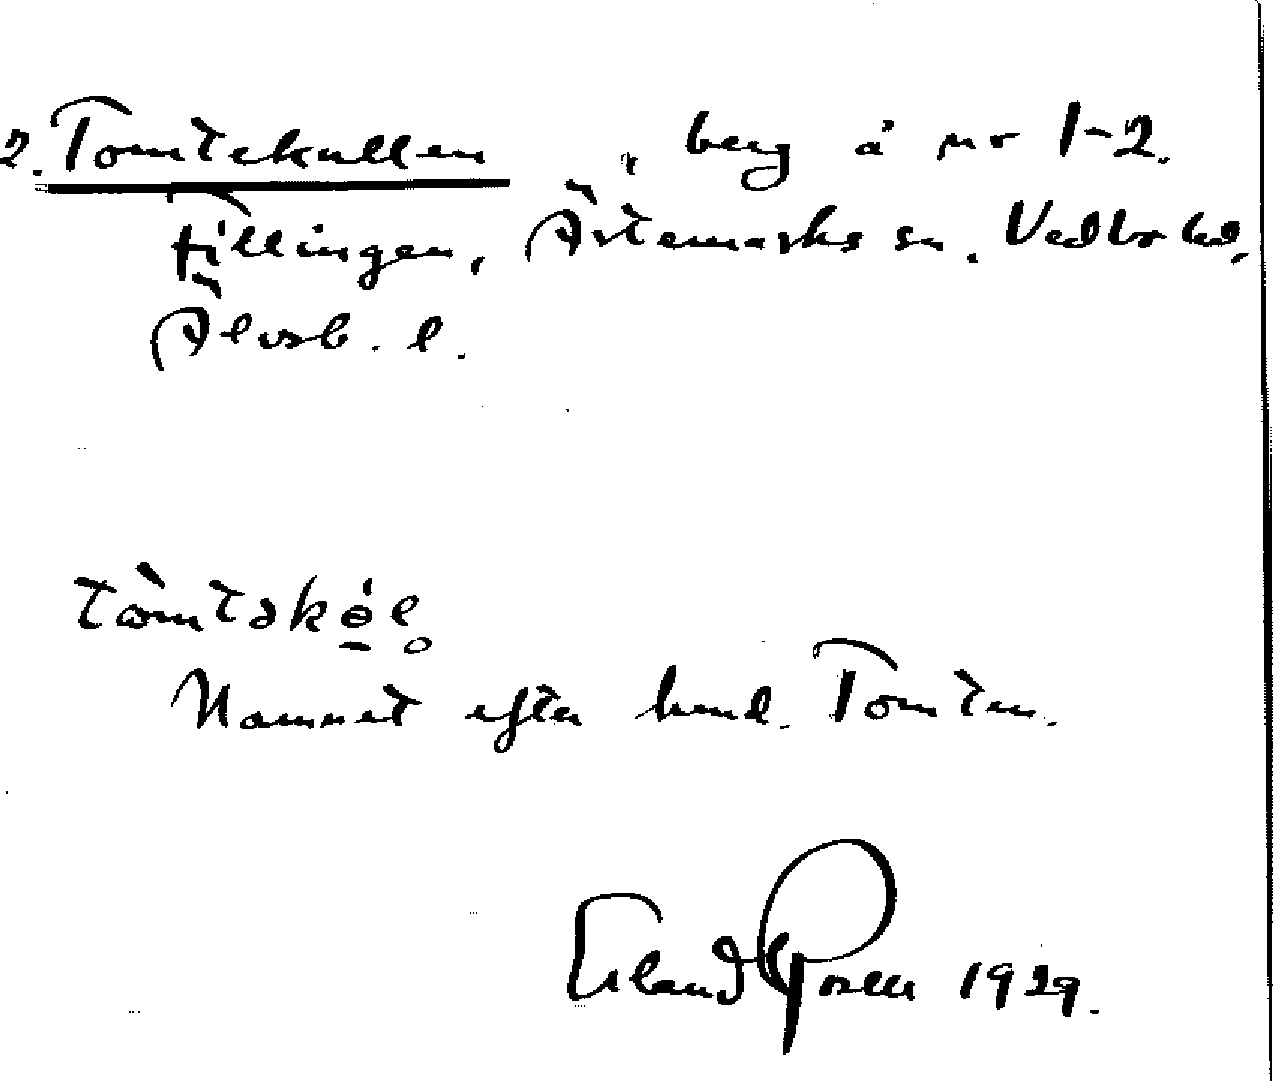 2. Tomtekullen, berg å nr 1-2.
Fillingen, Ärtemarks sn. Vedbo hd.
Älvsb. l.
tòmtəkɵ̠́l̥
Namnet efter hmd. Tomten.
Erland Rosell 1929.